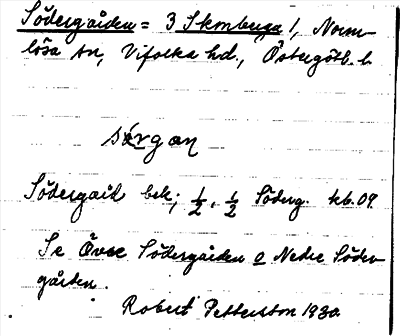 Södergården = 3 Skmbuga /, Norm-
lösa sn, Vifolka hd., Östergötl. l.
sörgan
Södergård bek; 1/2, 1/2 Söderg. kb.09.
Se Övre Södergården o Nedre Söder-
gården.
Robert Petterston 1930